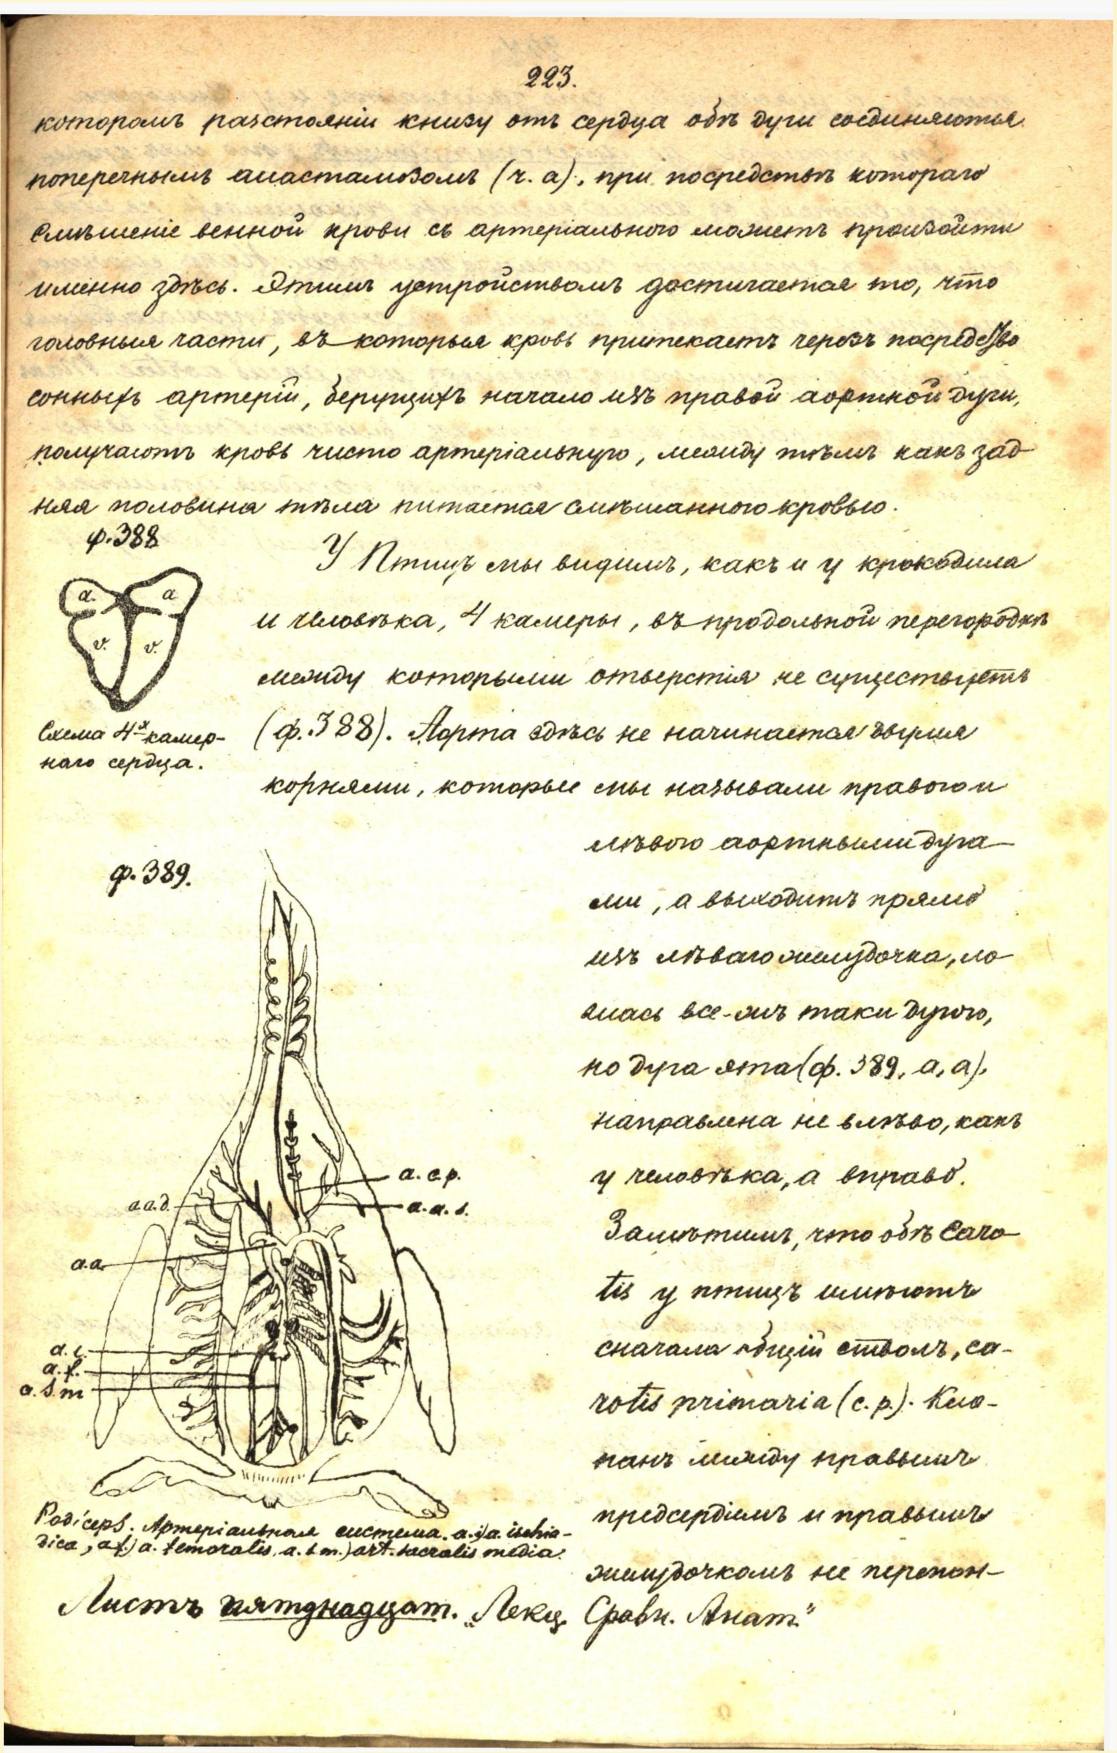 223.
которомъ разстояніи книзу отъ сердца обѣ дуги соединяются
поперечнымъ анастамозомъ (ч. а)., при посредствѣ котораго
смѣшеніе венной крови съ артеріального можетъ произойти
именно здѣсь. Этимъ устройствомъ достигается то, что
головныя части, въ которыя кровь притекаетъ черезъ посредство
сонныхъ артерій, берущихъ начало изъ правой аортной дуги,
получаютъ кровь чисто артеріальную, между тѣмъ какъ зад-
няя половина тѣла питается смѣшанного кровью.
ф. 388
a. a
v. v.
Схема 4х камер-
наго сердца.
У Птицъ мы видимъ, какъ и у крокодила
и человѣка, 4 камеры, въ продольной перегородкѣ
между которыми отверстія не существуетъ
(ф. 388). Аорта здѣсь не начинается двумя
корнями, которые мы называли правою и
лѣвою аортными дуга-
ми, а выходитъ прямо
изъ лѣваго желудочка, ло-
маясь все-жъ таки дугою,
но дуга эта (ф. 389, a, a).
направлена не влѣво, какъ
у человѣка, а вправо.
Замѣтимъ, что обѣ Caro-
tis у птицъ имѣютъ
сначала общій стволъ, ca-
rotis primaria (c. p.). Кла-
панъ между правымъ
предсердіемъ и правымъ
желудочкомъ не перепон-
ф. 389.
a. c. p.
a. a. s.
a a. d.
a. a
a. i.
a. f.
a. s. m
Podiceps. Артеріальная система. a. i) a. ischia-
dica, a f) a. femoralis, a. s m.) art. sacralis media.
Листъ пятнадцат. „Лекц. Сравн. Анат."